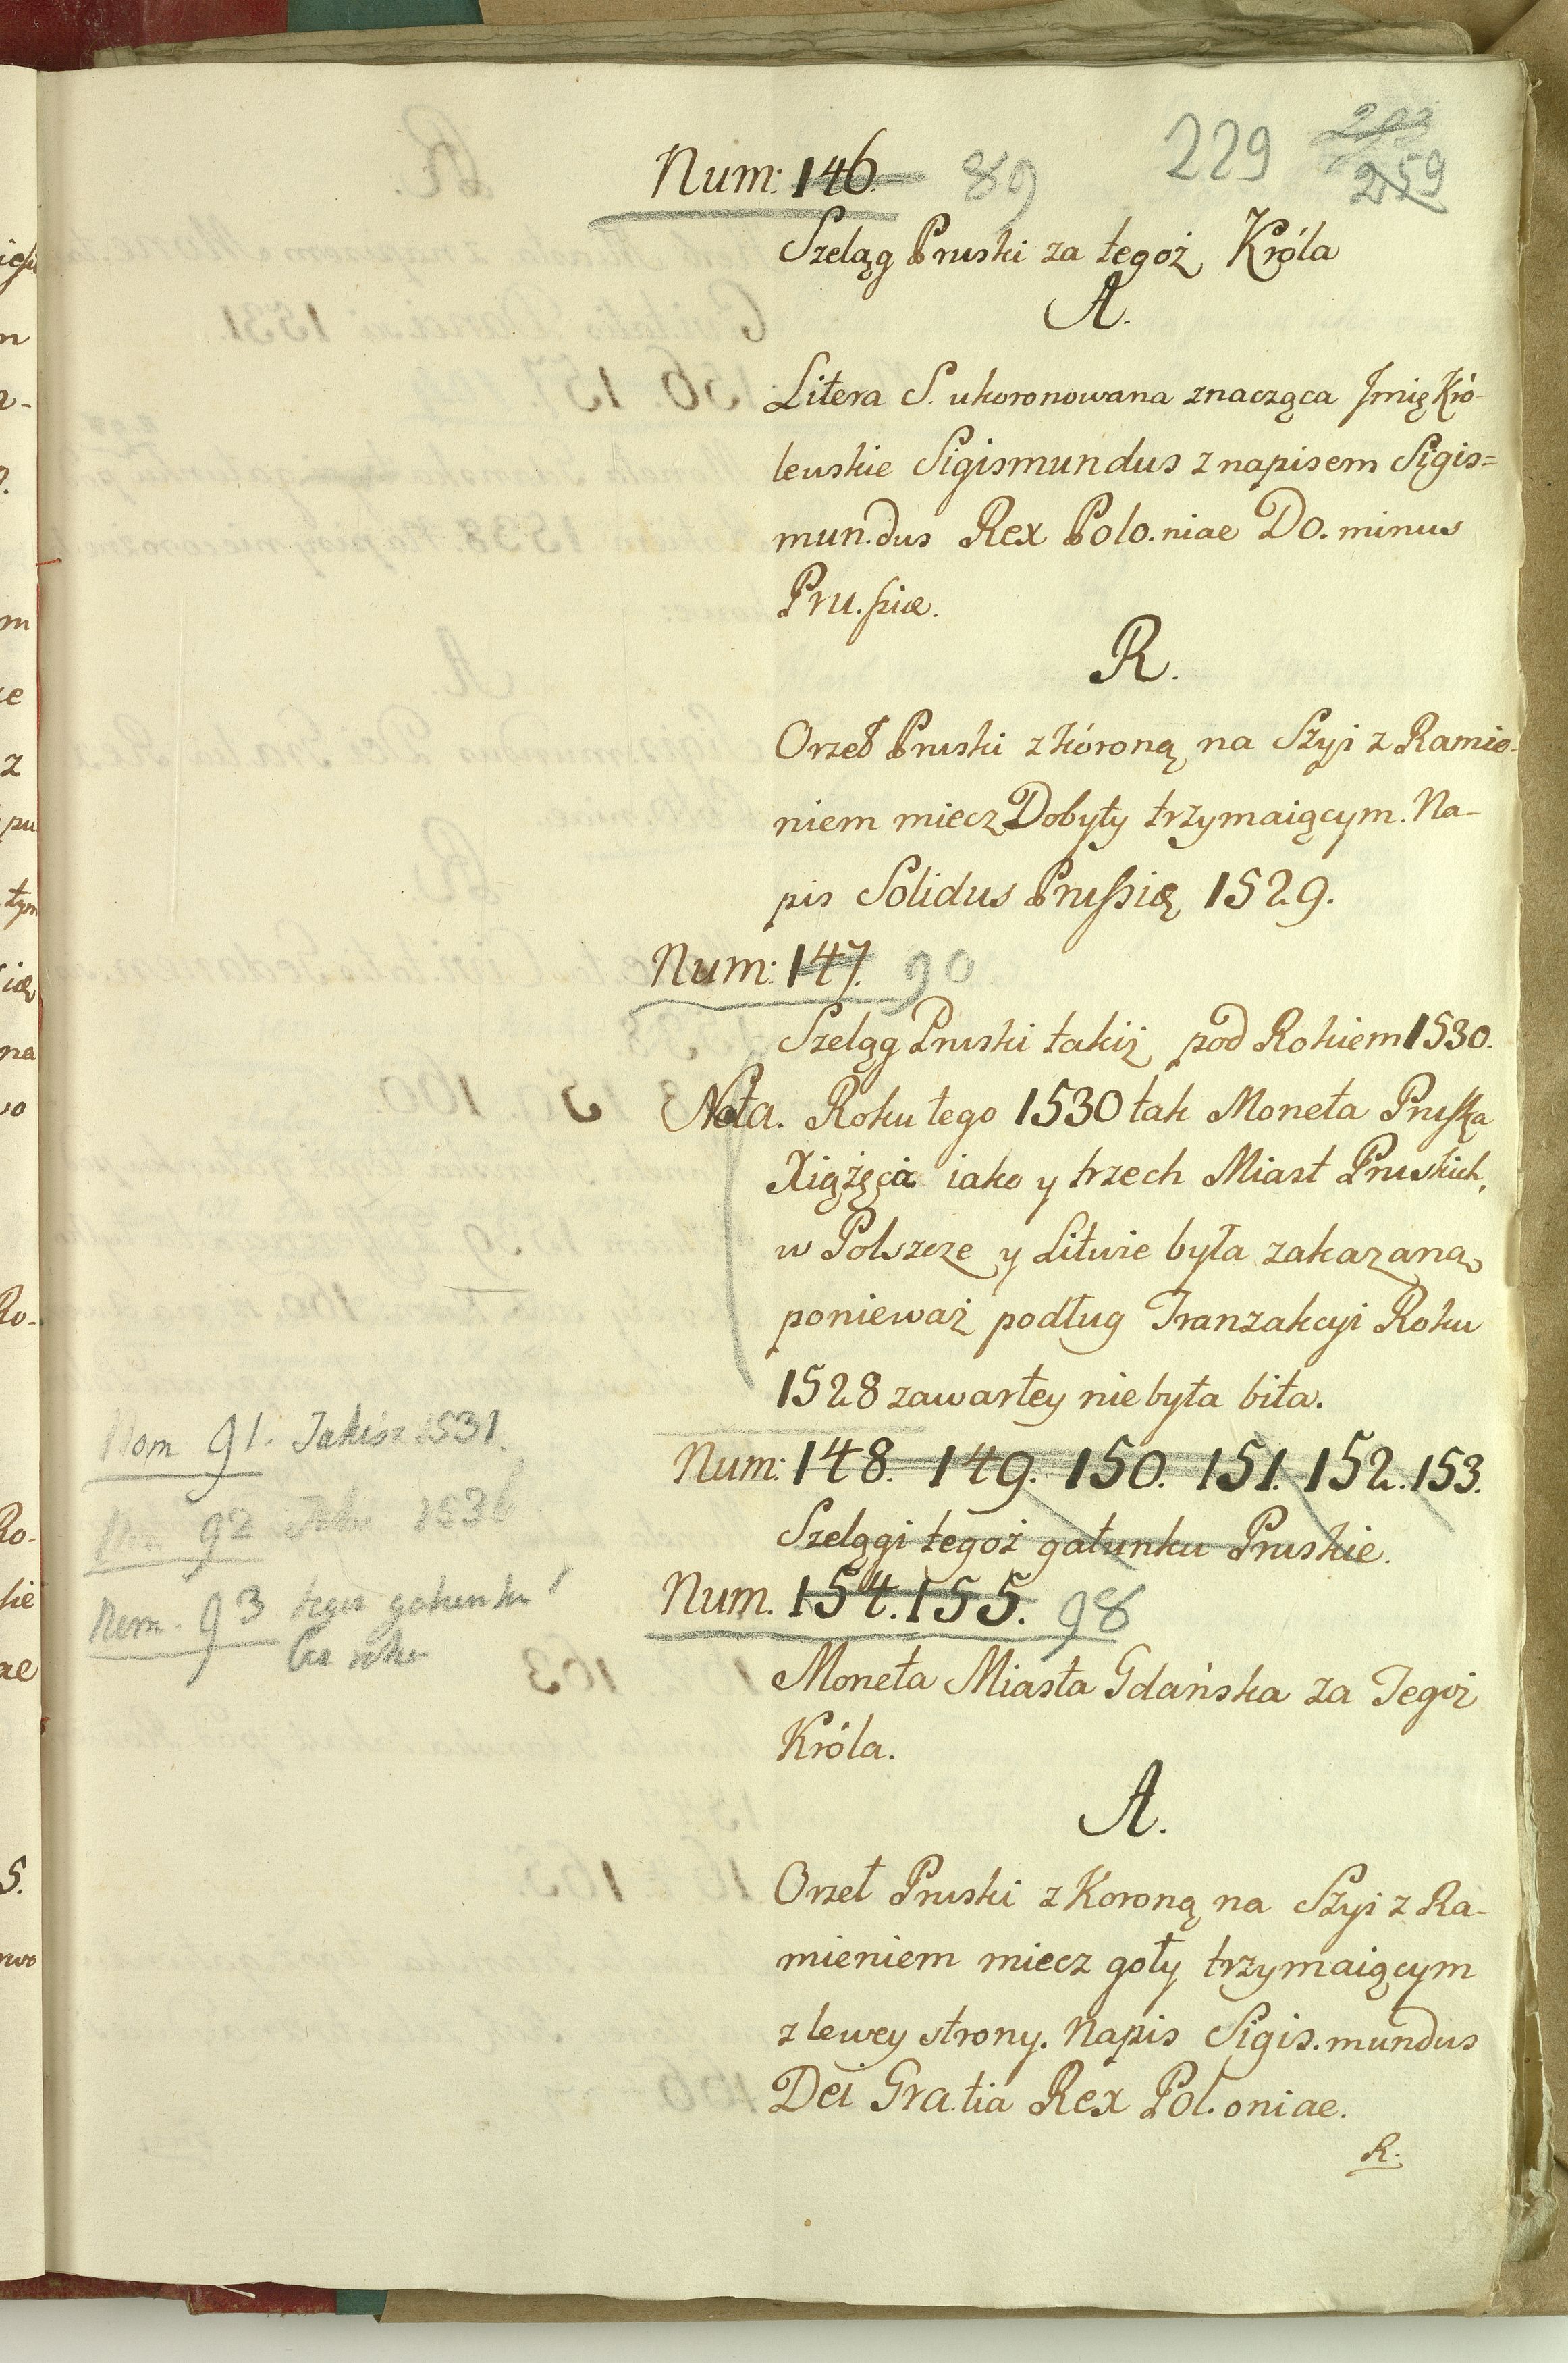 229
259
Num: 146. 89
Szeląg Pruski za tegoż Króla
A.
Litera S. ukoronowana znacząca Imię Kró-
lewskie Sigismundus z napisem Sigis=
mun.dus Rex Polo.niae Do.minus
Pru.ssiæ.
R.
Orzeł Pruski z kóroną na Szyi z Ramie-
niem miecz Dobyty trzymaiącym. Na-
pis Solidus Prussię 1529.
Num: 147. 90
Szeląg Pruski takiż pod Rokiem 1530.
Nota. Roku tego 1530 tak Moneta Pruska
Xiążęcia iako y trzech Miast Pruskich,
w Polszcze y Litwie była zakazana,
ponieważ podług Tranzakcyi Roku
1528 zawartey nie była bita.
Num: 148. 149. 150. 151. 152. 153.
Szelągi tegoż gatunku Pruskie.
Num. 154. 155. 98
Moneta Miasta Gdańska za Tegoż
Króla.
A.
Orzeł Pruski z Koroną na Szyi z Ra-
mieniem miecz goły trzymaiącym
z lewey strony. Napis Sigis.mundus
Dei Gra.tia Rex Pol.oniae.
R.
Nom 91. Takiż 1531.
92 1536
Nom. 93 tegoż gatunku
bez roku